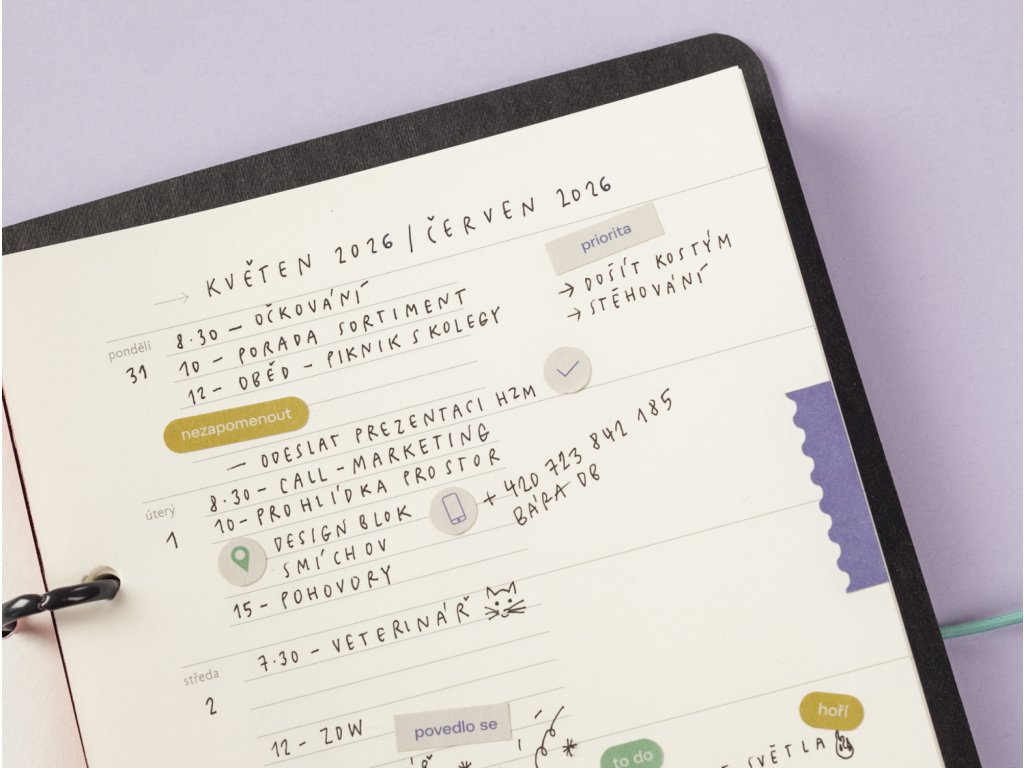 KVĚTEN 2026 / ČERVEN 2026
priorita
→ DOŠÍT KOSTÝM
→ STĚHOVÁNÍ
pondělí
31
8.30 – OČKOVÁNÍ
10 – PORADA SORTIMENT
12 – OBĚD – PIKNIK S KOLEGY
nezapomenout
– ODESLAT PREZENTACI HZM
úterý
1
8.30 – CALL – MARKETING
10 – PROHLÍDKA PROSTOR
DESIGN BLOK
SMÍCHOV
+ 420 723 841 185
BÁRA DB
15 – POHOVORY
středa
2
7.30 – VETERINÁŘ
12 – ZOW
povedlo se
to do
hoří
SVĚTLA